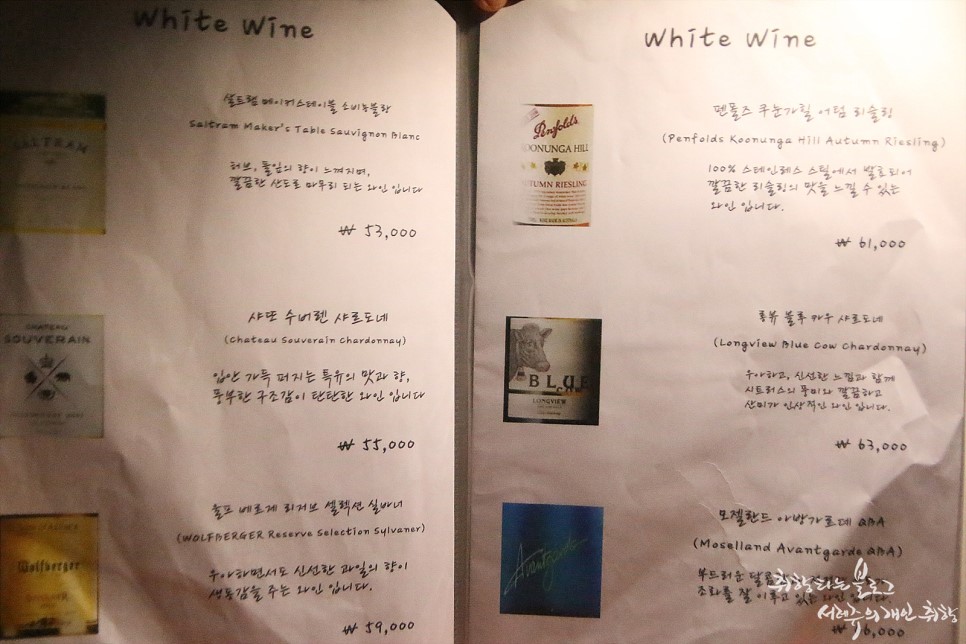 White Wine
SALTRAM
샬트램 메이커스테이블 소비뇽블랑
Saltram Maker's Table Sauvignon Blanc
허브, 풀잎의 향이 느껴지며,
깔끔한 산도로 마무리 되는 와인 입니다
₩ 53,000
CHATEAU
SOUVERAIN
샤또 수버렌 샤르도네
(Chateau Souverain Chardonnay)
입안 가득 퍼지는 특유의 맛과 향,
풍부한 구조감이 탄탄한 와인 입니다
₩ 55,000
Wolfberger
울프 베르제 리저브 셀렉션 실바너
(WOLFBERGER Reserve Selection Sylvaner)
우아하면서도 신선한 과일의 향이
생동감을 주는 와인 입니다.
₩ 59,000
White Wine
Penfolds
KOONUNGA HILL
AUTUMN RIESLING
펜폴즈 쿠눈가힐 어텀 리슬링
(Penfolds Koonunga Hill Autumn Riesling)
100% 스테인레스 스틸에서 발효되어
깔끔한 리슬링의 맛을 느낄 수 있는
와인 입니다.
₩ 61,000
BLUE
COW
LONGVIEW
롱뷰 블루 카우 샤르도네
(Longview Blue Cow Chardonnay)
우아하고, 신선한 느낌과 함께
시트러스의 풍미와 깔끔하고
산미가 인상적인 와인 입니다.
₩ 63,000
Avantgarde
모젤란드 아방가르데 QBA
(Moselland Avantgarde QBA)
부드러운
조화를 잘 이루고 있는 와인 입니다.
취향타는블로그
서현주의 개인 취향